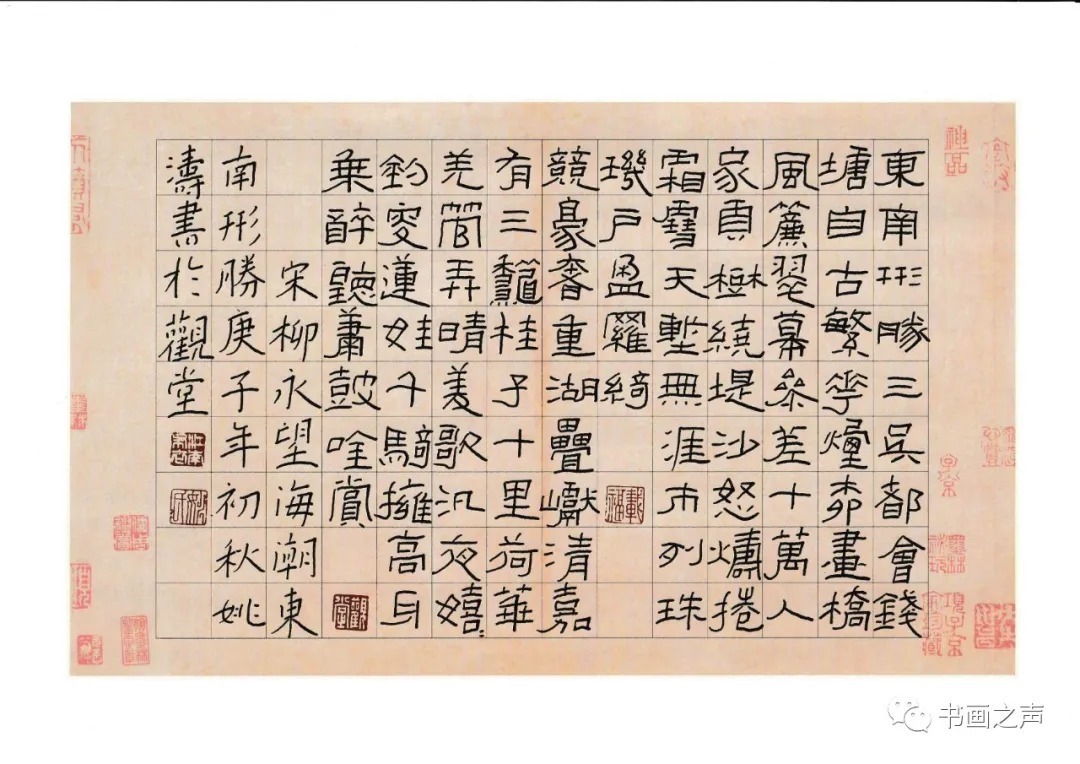 東南形勝三吳都會錢
塘自古繁華煙柳畫橋
風簾翠幕參差十萬人
家雲樹繞堤沙怒濤捲
霜雪天塹無涯市列珠
璣戶盈羅綺
競豪奢重湖疊巘清嘉
有三秋桂子十里荷華
羌管弄晴菱歌汎夜嬉
釣叟蓮娃千騎擁高牙
乘醉聽簫鼓吟賞
觀堂
宋柳永望海潮東
南形勝庚子年初秋姚
濤書於觀堂
书画之声